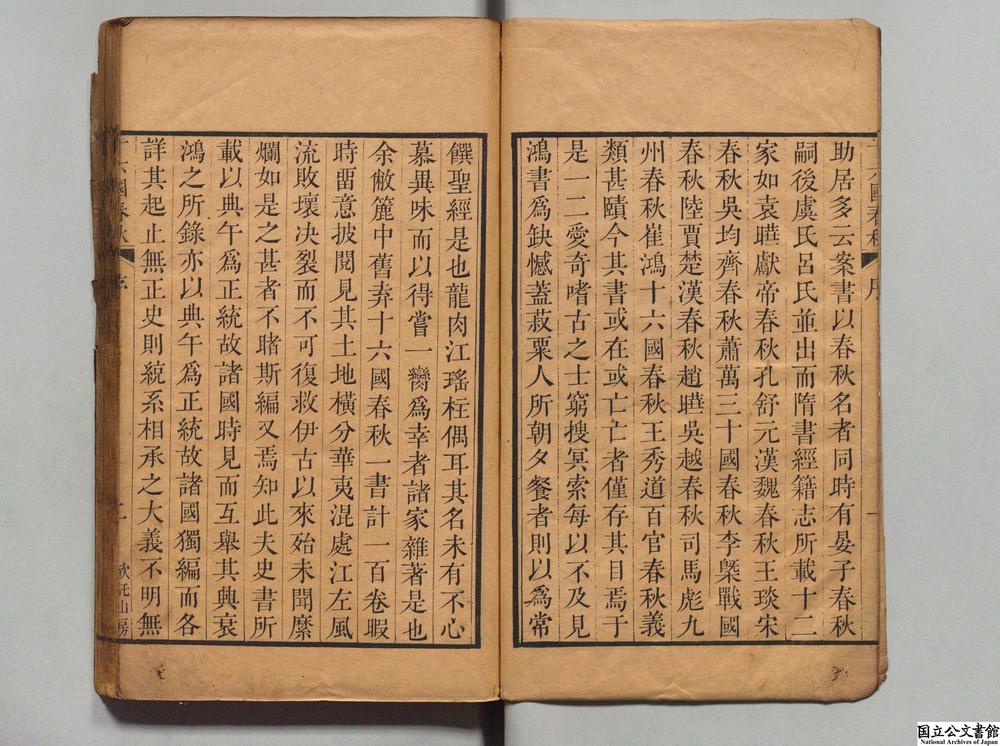 助居多云案書以春秋名者同時有晏子春秋
嗣後虞氏呂氏並出而隋書經籍志所載十二
家如袁曄獻帝春秋孔舒元漢魏春秋王琰宋
春秋吳均齊春秋蕭萬三十國春秋李槩戰國
春秋陸賈楚漢春秋趙曄吳越春秋司馬彪九
州春秋崔鴻十六國春秋王秀道百官春秋義
類甚賾今其書或在或亡亡者僅存其目焉于
是一二愛奇嗜古之士窮搜冥索每以不及見
鴻書爲缺憾蓋菽粟人所朝夕餐者則以爲常
饌聖經是也龍肉江瑤柱偶耳其名未有不心
慕異味而以得嘗一臠爲幸者諸家雜著是也
余敝簏中舊弆十六國春秋一書計一百卷暇
時畱意披閱見其土地橫分華夷混處江左風
流敗壞决裂而不可復救伊古以來殆未聞縻
爛如是之甚者不睹斯編又焉知此夫史書所
載以典午爲正統故諸國時見而互舉其興衰
鴻之所錄亦以典午爲正統故諸國獨編而各
詳其起止無正史則統系相承之大義不明無
十六國春秋 序 二 欣託山房
国立公文書館
National Archives of Japan